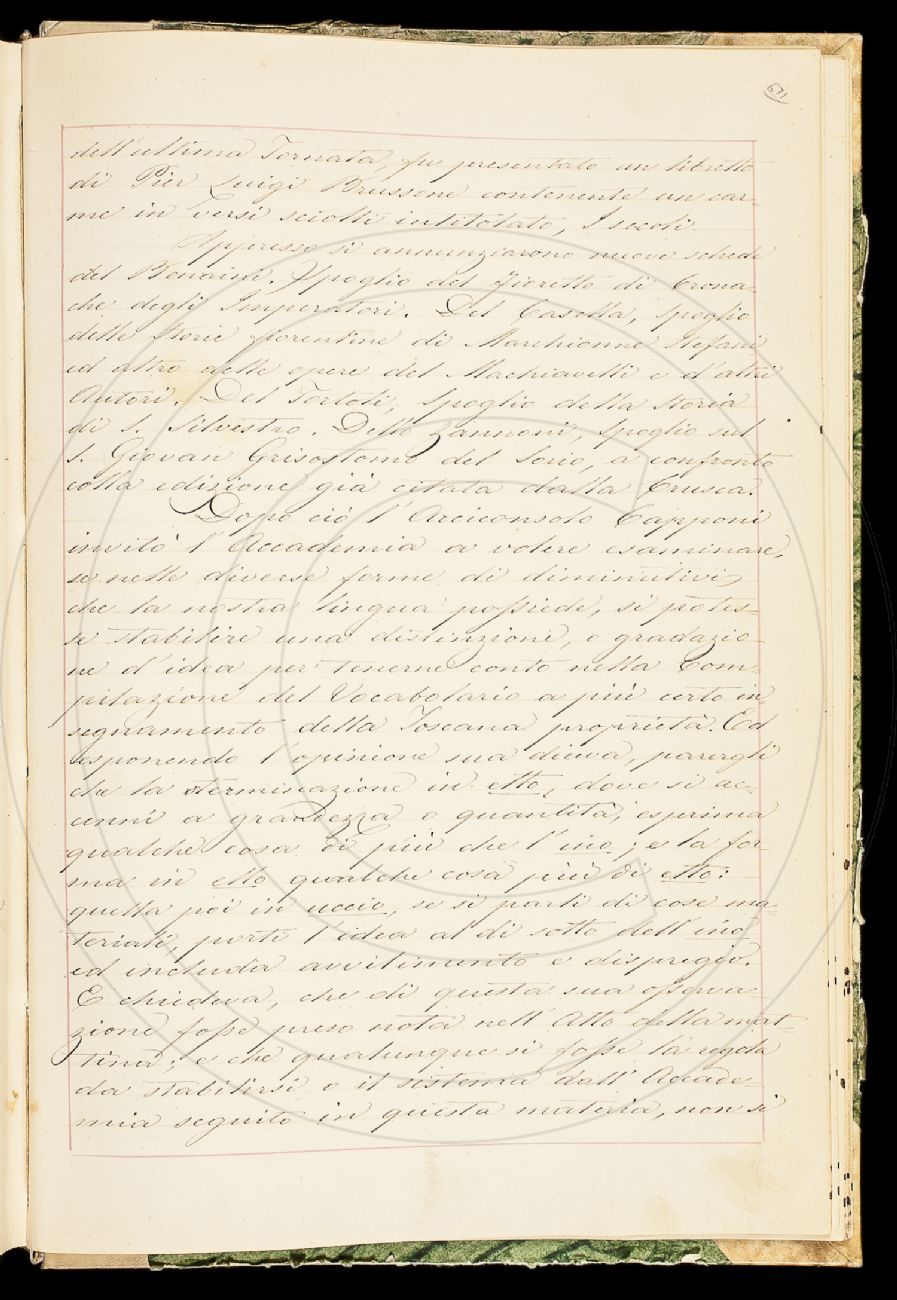 671
dell'ultima Tornata, fu presentato un libretto
di Pier Luigi Brussone contenente un car-
me in versi sciolti intitolato, I secoli.
Appresso si annunziarono nuove schede
del Bonaini. Spoglio del Fioretto di Crona-
che degli Imperatori. Del Casella, spoglio
delle Storie fiorentine di Marchionne Stefani
ed altro delle opere del Machiavelli e d'altri
Autori. Del Tortoli, Spoglio della Storia
di S. Silvestro. Dello Zannoni, spoglio sul
S. Giovan Grisostomo del Sorio, a confronto
colla edizione già citata dalla Crusca.
Dopo ciò l'Arciconsolo Capponi
invitò l'Accademia a volere esaminare,
se nelle diverse forme di diminutivi,
che la nostra lingua possiede, si potes-
se stabilire una distinzione, o gradazio-
ne d'idea per tenerne conto nella Com-
pilazione del Vocabolario a più certo in-
segnamento della Toscana proprietà. Ed
esponendo l'opinione sua diceva, parergli
che la terminazione in etto, dove si ac-
cenni a grandezza o quantità, esprima
qualche cosa di più che l'ino; e la for-
ma in ello qualche cosa più di etto:
quella poi in uccio, se si parli di cose ma-
teriali, porti l'idea al di sotto dell'ino,
ed includa avvilimento e dispregio.
E chiedeva, che di questa sua osserva-
zione fosse preso nota nell'Atto della mat-
tina; e che qualunque si fosse la regola
da stabilirsi o il sistema dall'Accade-
mia seguito in questa materia, non si